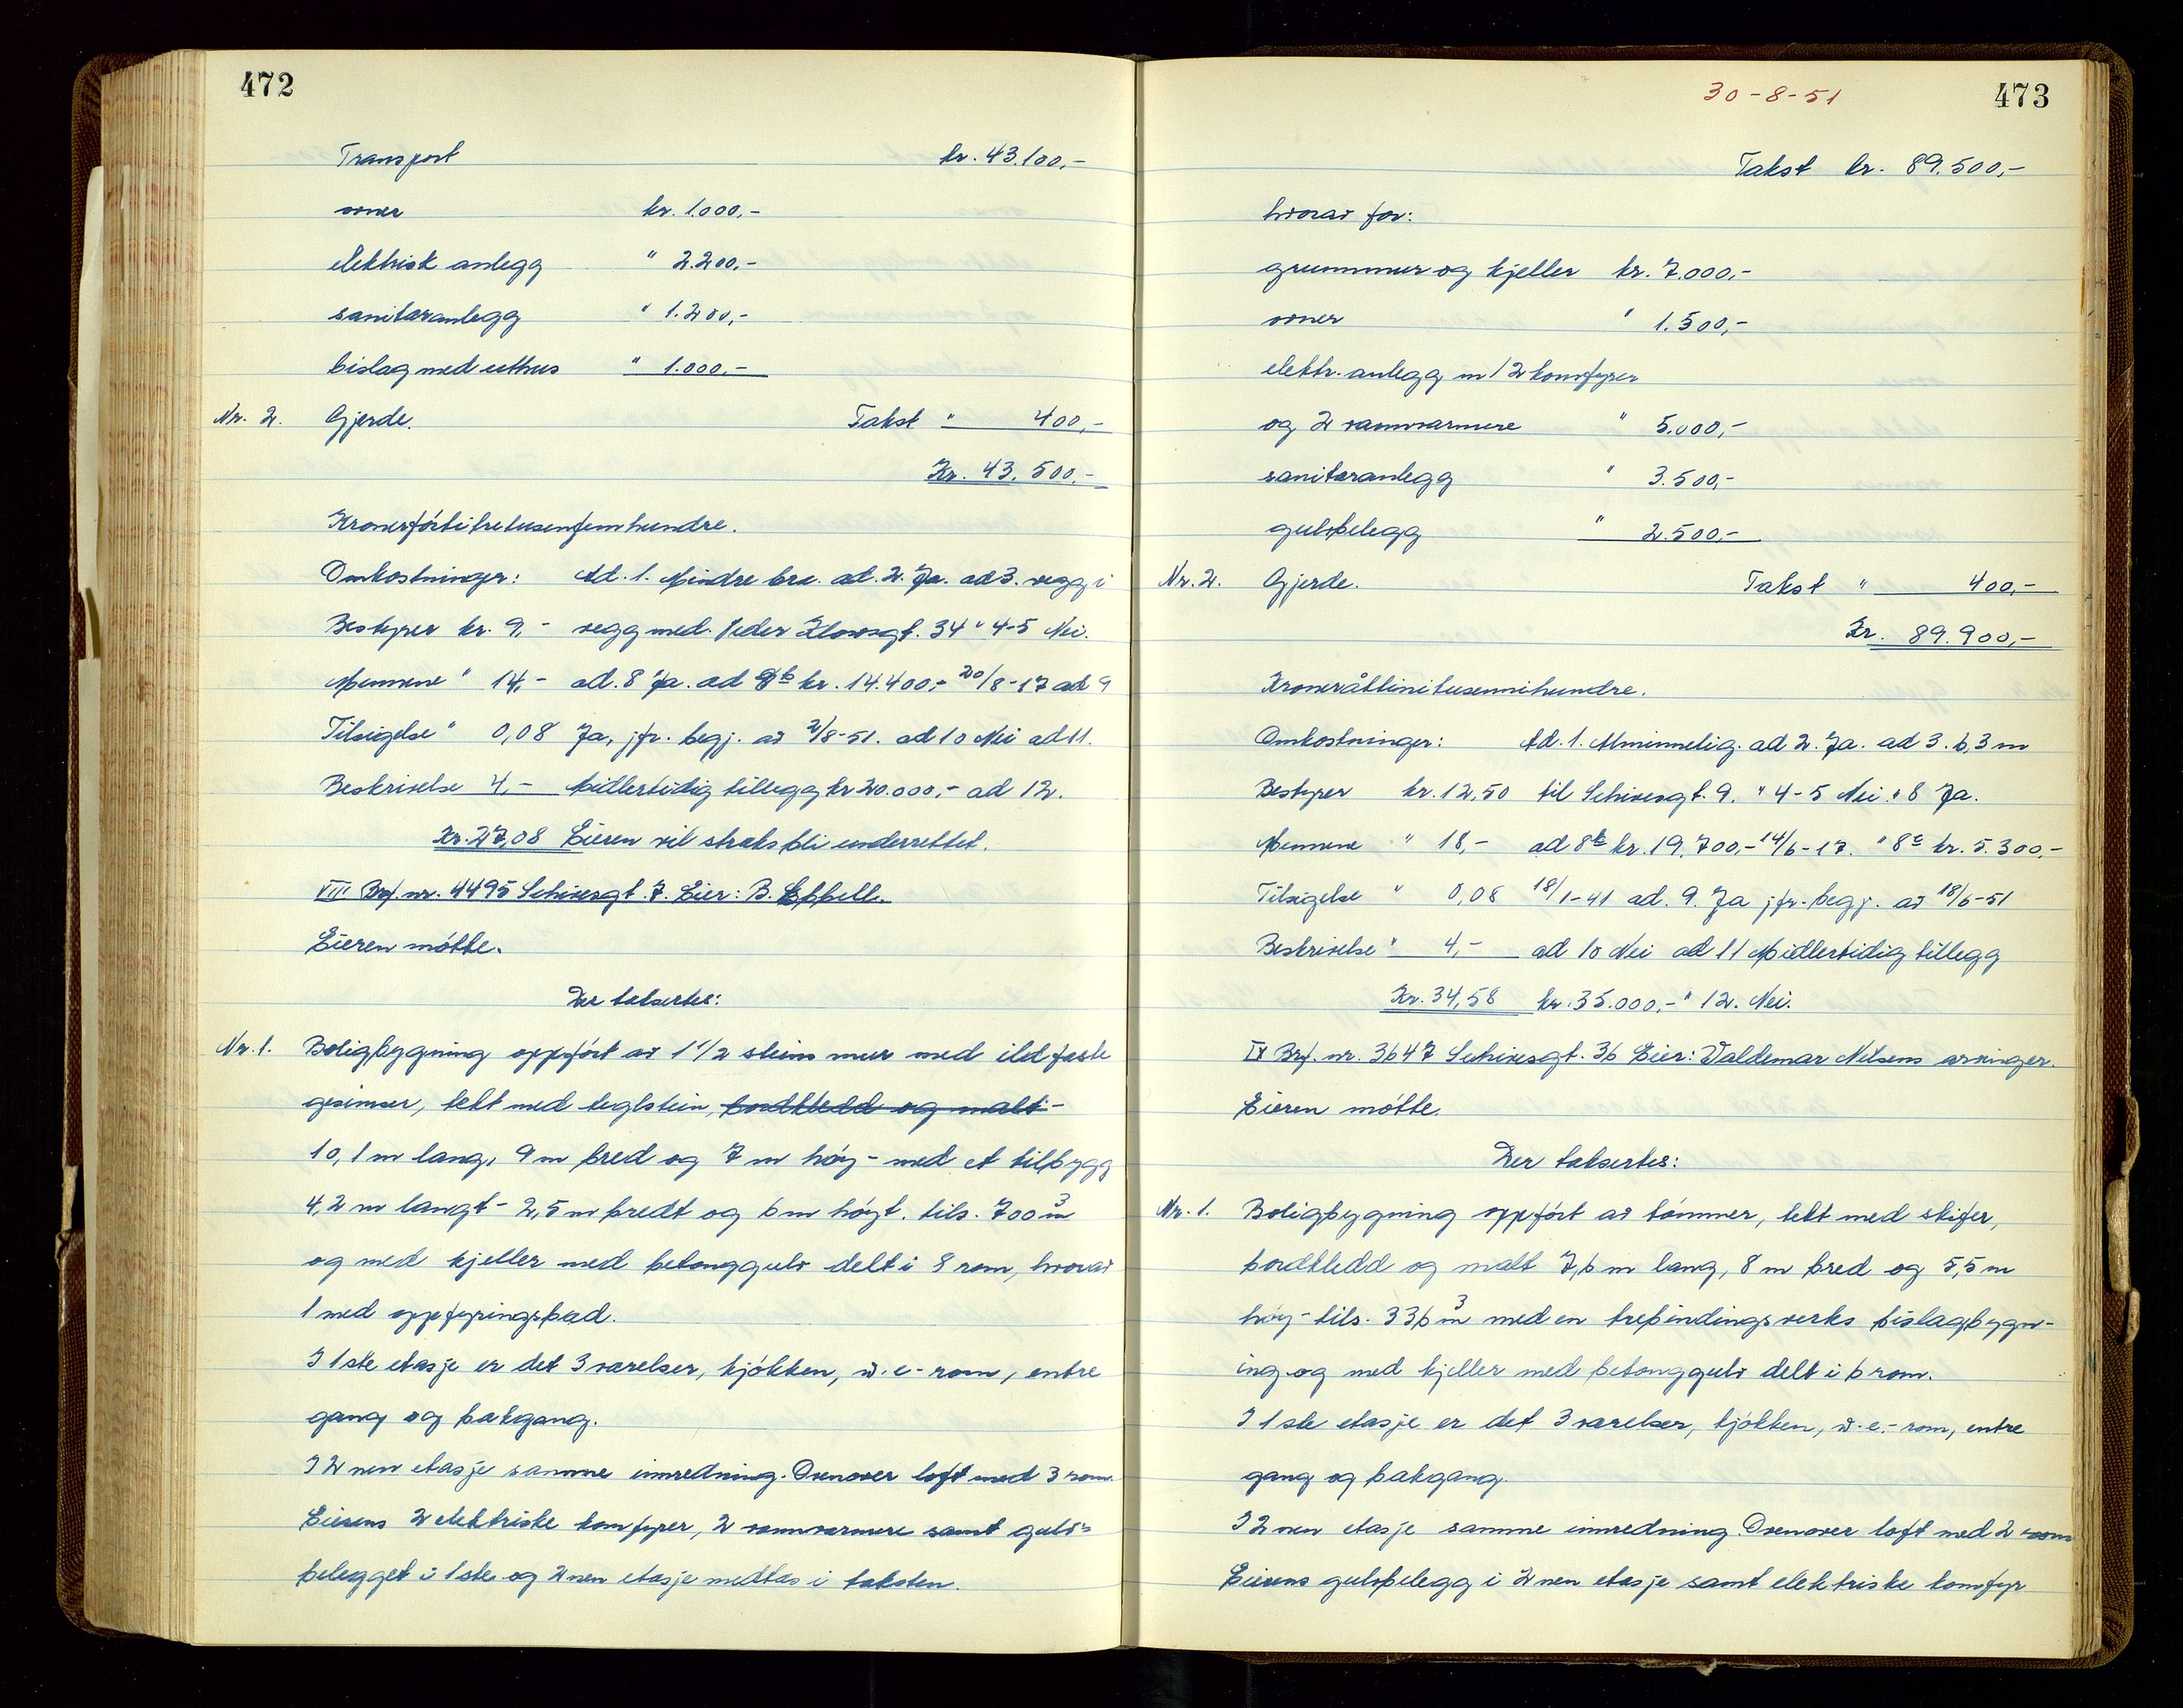 472
Transport kr. 43.100,-
ovner kr. 1.000,-
elektrisk anlegg " 2.200,-
sanitæranlegg " 1.200,-
bislag med uthus " 1.000,-
Nr. 2. Gjerde. Takst " 400,-
Kr. 43.500,-
Kronerførtitretusenfemhundre.
Omkostninger: Ad. 1. Mindre bra. ad. 2. Ja. ad 3. vegg i
Bestyrer kr. 9,- vegg med. Peder Klowsgt. 34 " 4-5 Nei.
Mennene " 14,- ad. 8 Ja. ad 8b kr. 14.400,- 20/8-17 ad 9
Tilsigelse " 0,08 Ja, jfr. begj. av 2/8-51. ad 10 Nei ad 11.
Beskrivelse 4,- Midlertidig tillegg kr 20.000,- ad 12.
Kr. 27,08 Eieren vil straks bli underrettet.
VIII Brf. nr. 4495 Schivesgt. 7. Eier: B.
Eieren møtte.
Der takseres:
Nr. 1. Boligbygning oppført av 1 1/2 steins mur med ildfaste
gesimser, tekt med teglstein, bordkledd og malt -
10,1 m lang, 9 m bred og 7 m høy - med et tilbygg
4,2 m langt - 2,5 m bredt og 6 m høyt. tils. 700 m3
og med kjeller med betonggulv delt i 8 rom, hvorav
1 med oppfyringsbad.
I 1ste etasje er det 3 værelser, kjøkken, w.c.-rom, entre
gang og bakgang.
I 2nen etasje samme innredning. Ovenover loft med 3 rom.
Eierens 2 elektriske komfyrer, 2 vannvarmere samt gulv=
belegget i 1ste og 2nen etasje medtas i taksten.
30-8-51
473
Takst kr. 89.500,-
hvorav for:
grunnmur og kjeller kr. 7.000,-
ovner " 1.500,-
elektr. anlegg m/2 komfyrer
og 2 vannvarmere " 5.000,-
sanitæranlegg " 3.500,-
gulvbelegg " 2.500,-
Nr. 2. Gjerde. Takst " 400,-
Kr. 89.900,-
Kroneråttinitusennihundre.
Omkostninger: Ad. 1. Alminnelig. ad 2. Ja. ad 3. 6,3 m
Bestyrer kr. 12,50 til Schivesgt. 9. " 4-5 Nei. " 8 Ja.
Mennene " 18,- ad 8b kr. 19.700,- 14/6-17. " 8c kr. 5.300,-
Tilsigelse " 0,08 18/1-41 ad. 9. Ja jfr. begj. av 18/6-51
Beskrivelse " 4,- ad 10 Nei ad 11 Midlertidig tillegg
Kr. 34,58 kr. 35.000,- " 12. Nei.
IX Brf. nr. 3647 Schivesgt. 36 Eier: Valdemar Nilsens arvinger.
Eieren møtte.
Der takseres:
Nr. 1. Boligbygning oppført av tømmer, tekt med skifer,
bordkledd og malt 7,6 m lang, 8 m bred og 5,5 m
høy - tils. 336 m3 med en trebindingsverks bislagbygn-
ing og med kjeller med betonggulv delt i 6 rom.
I 1ste etasje er det 3 værelser, kjøkken, w.c.-rom, entre
gang og bakgang.
I 2nen etasje samme innredning. Ovenover loft med 2 rom
Eierens gulvbelegg i 2nen etasje samt elektriske komfyr